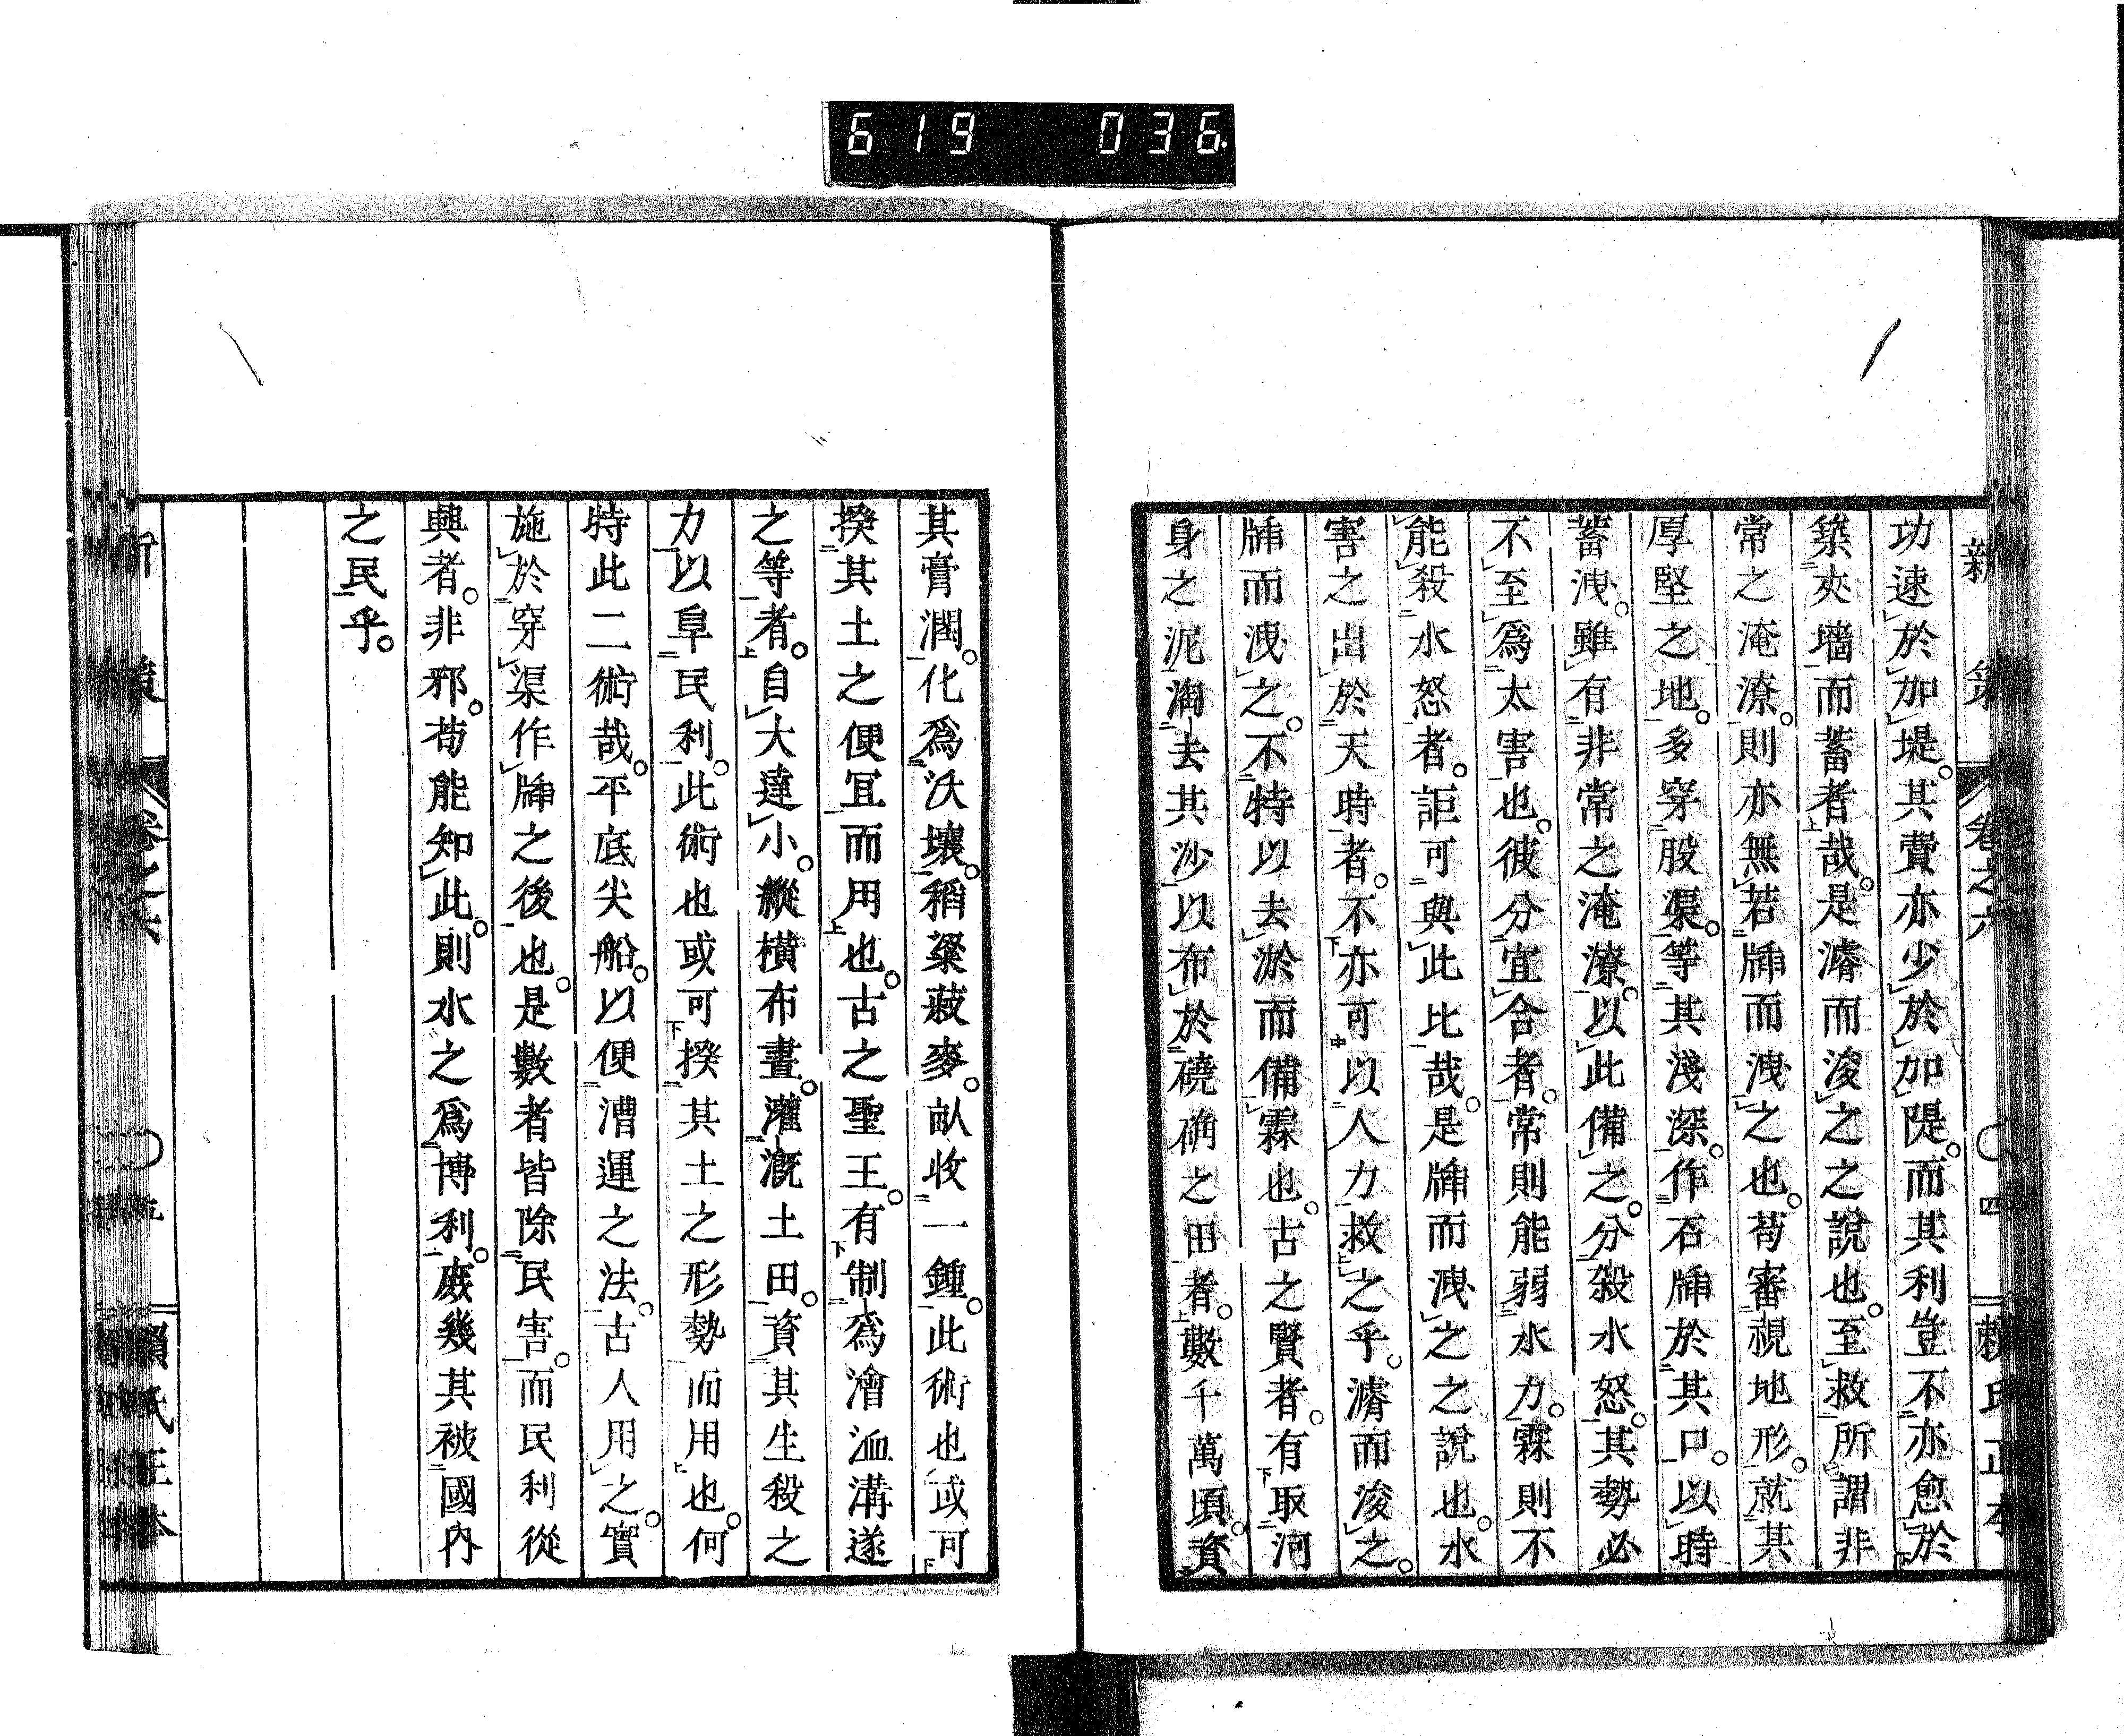 619 036
新策 卷之六 〇四 賴氏正本
功速於加堤。其費亦少於加隄。而其利豈不亦愈於
築夾墻而蓄者哉。是濬而浚之之說也。至救所謂非
常之淹潦。則亦無若㭼而洩之也。苟審視地形。就其
厚堅之地。多穿股渠。等其淺深。作石㭼於其口。以時
蓄洩。雖有非常之淹潦。以此備之。分殺水怒。其勢必
不至爲太害也。彼分宜合者。常則能弱水力。霖則不
能殺水怒者。詎可與此比哉。是㭼而洩之之說也。水
害之出於天時者。不亦可以人力救之乎。濬而浚之。
㭼而洩之。不特以去淤而備霖也。古之賢者。有取河
身之泥淘去其沙以布於磽确之田者。數千萬頃。資
其膏潤。化爲沃壤。稻粱菽麥。畝收一鍾。此術也或可
揆其土之便宜而用也。古之聖王。有制爲澮洫溝遂
之等者。自大達小。縱橫布畫。灌漑土田。資其生殺之
力以阜民利。此術也或可揆其土之形勢而用也。何
特此二術哉。平底尖船。以便漕運之法。古人用之。實
施於穿渠作㭼之後也。是數者皆除民害。而民利從
興者。非邪。苟能知此。則水之爲博利。庶幾其被國內
之民乎。
卷之六 〇五